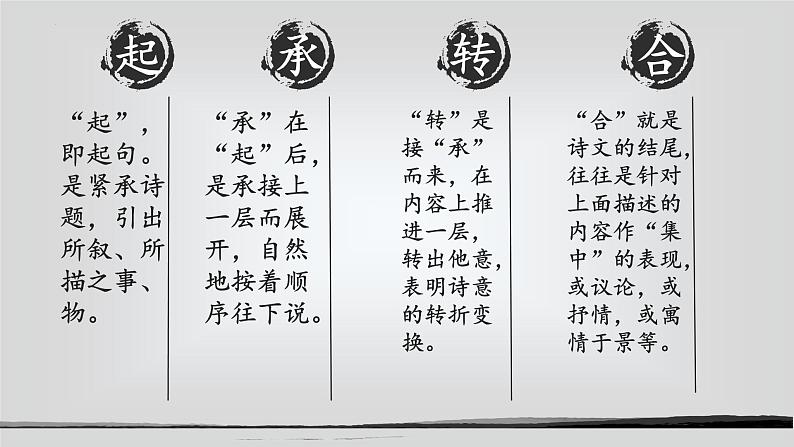 起
承
转
合
“起”，
即起句。
是紧承诗
题，引出
所叙、所
描之事、
物。
“承”在
“起”后，
是承接上
一层而展
开，自然
地按着顺
序往下说。
“转”是
接“承”
而来，在
内容上推
进一层，
转出他意，
表明诗意
的转折变
换。
“合”就是
诗文的结尾，
往往是针对
上面描述的
内容作“集
中”的表现，
或议论，或
抒情，或寓
情于景等。